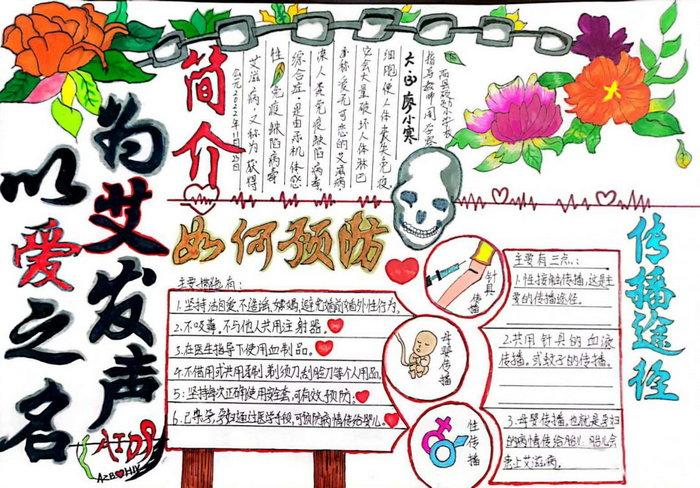 以爱之名
为艾发声
简介
艾滋病,又称为获得
性免疫缺陷病毒
综合症,是由于机体感
染人类免疫缺陷病毒,
它会大量破坏人体淋巴
细胞,使人体丧失免疫
廖小寒
指导教师:
公元2022年11月25日
如何预防
主要措施有:
1.坚持洁自爱,不 嫖娼,避免婚前婚外性行为。
2.不吸毒,不与他人共用注射器。
3.在医生指导下使用血制品。
4.不借用或共用牙刷,剃须刀,刮脸刀等个人用品。
5:坚持每次正确使用安全套,可有效预防:
6.已怀孕,孕妇通过医学手段,可预防病情传给婴儿.
针具传播
母婴传播
性传播
传播途径
主要有三点.:
1.性接触传播,这是主
要的传播途径.
2.共用针具的血液
传播.或蚊子的传播.
3.母婴传播,也就是孕妇
的病情传给胎儿.胎儿会
患上艾滋病.
AIDS